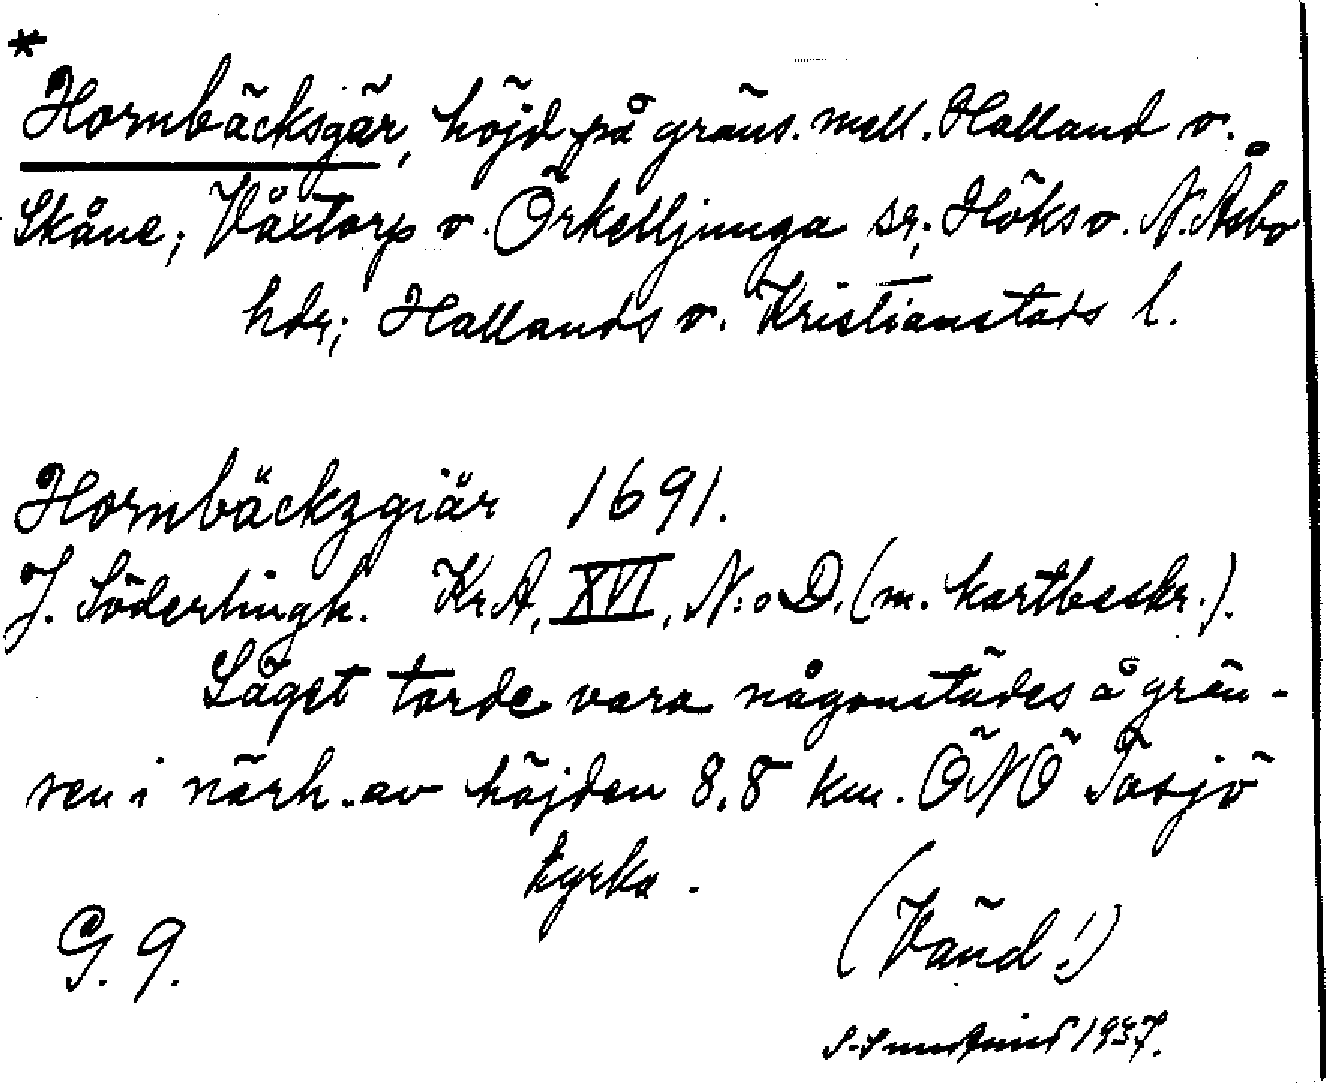 *
Hornbäcksgär, höjd på gräns. mell. Halland o.
Skåne; Våxtorp o. Örkelljunga sr; Höks o. N. Åsbo
hdr; Hallands o. Kristianstads l.
Hornbäckzgiär 1691.
J. Söderlingh. Kr.A, XVI, N:o D. (m. kartbeskr.).
Läget torde vara någonstädes å grän-
sen i närh. av höjden 8,8 km. ÖNÖ Tåsjö
kyrka.
G. 9.
(Vänd!)
1937.